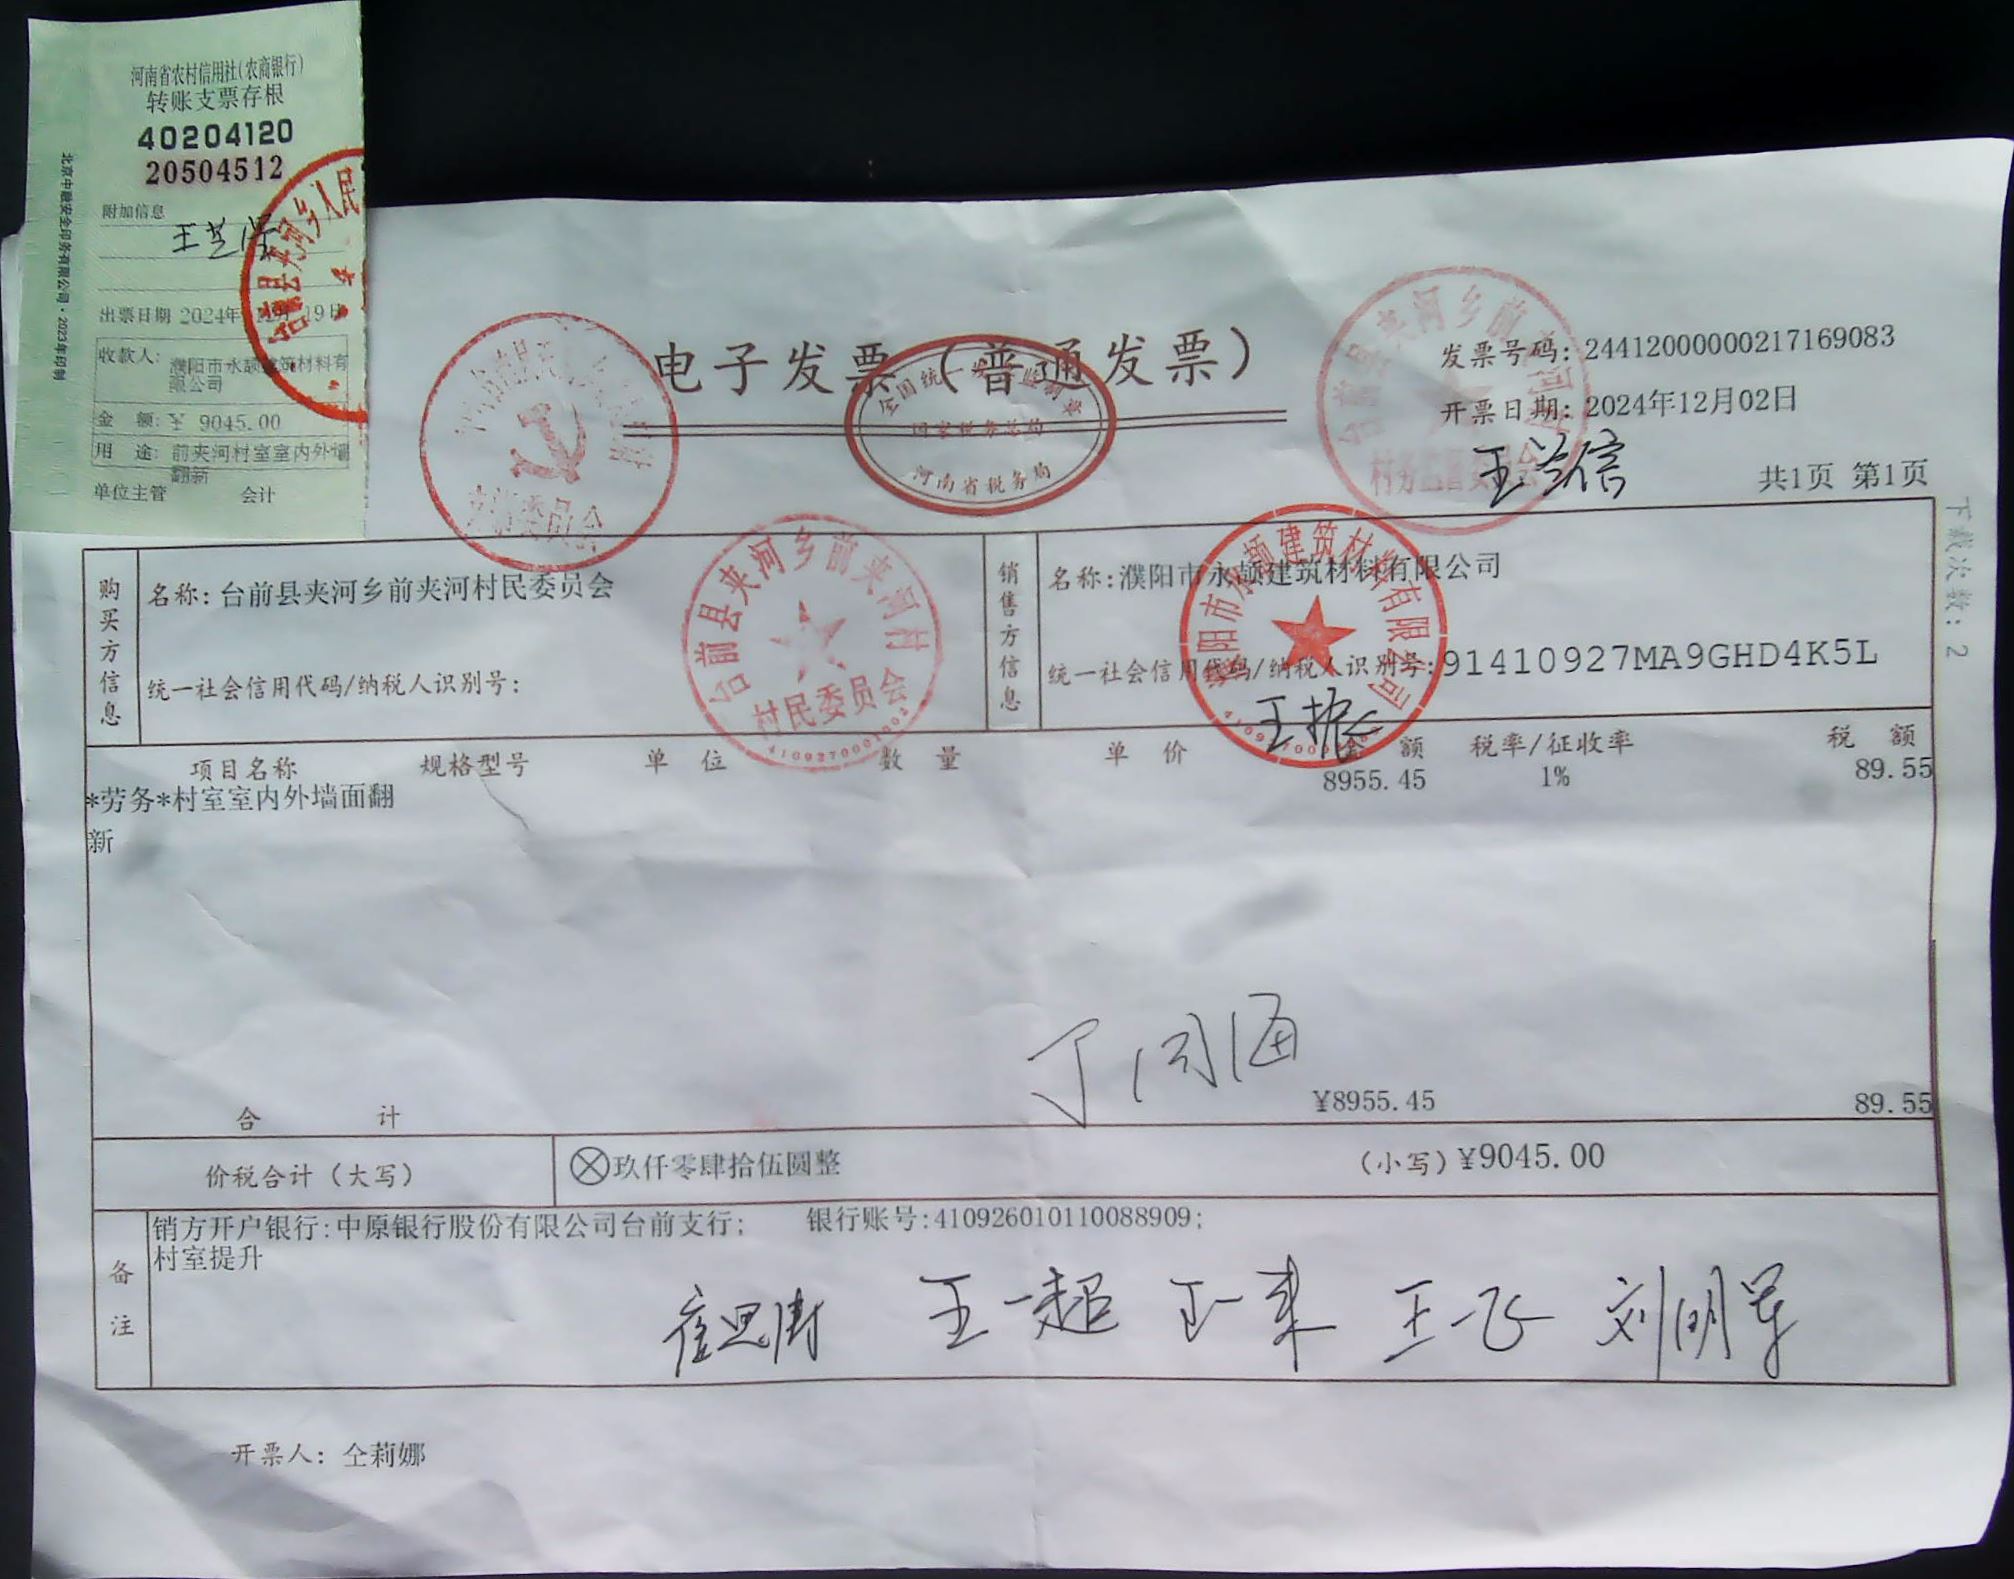 河南省农村信用社(农商银行)
转账支票存根
40204120
20504512
附加信息
出票日期 2024年12月19日
收款人: 濮阳市永颉建筑材料有
限公司
金 额: ¥ 9045.00
用 途: 前夹河村室室内外墙
翻新
单位主管 会计
北京中融安全印务有限公司·2023年印制
电子发票（普通发票）
全国统一发票监制章
国家税务总局
河南省税务局
发票号码: 24412000000217169083
开票日期: 2024年12月02日
王兰信
共1页 第1页
下载次数: 2
购买方信息
名称: 台前县夹河乡前夹河村民委员会
统一社会信用代码/纳税人识别号:
台前县夹河乡前夹河村
村民委员会
销售方信息
名称: 濮阳市永颉建筑材料有限公司
统一社会信用代码/纳税人识别号: 91410927MA9GHD4K5L
项目名称 规格型号 单 位 数 量 单 价 金 额 税率/征收率 税 额
*劳务*村室室内外墙面翻 8955.45 1% 89.55
新
合 计 ¥8955.45 89.55
价税合计（大写） ⊗玖仟零肆拾伍圆整 (小写) ¥9045.00
备注
销方开户银行:中原银行股份有限公司台前支行; 银行账号:410926010110088909;
村室提升
王一超 王一来 王一飞 刘明军
开票人: 仝莉娜